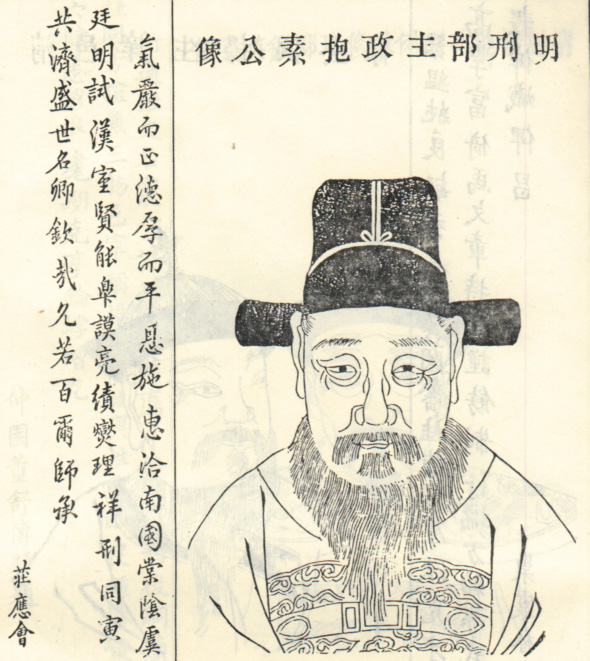 明刑部主政抱素公像
氣嚴而正德厚而平恩施惠洽南國棠陰虞
廷明試漢室賢能皋謨亮績燮理祥刑同寅
共濟盛世名卿欽哉允若百爾師承
莊應會